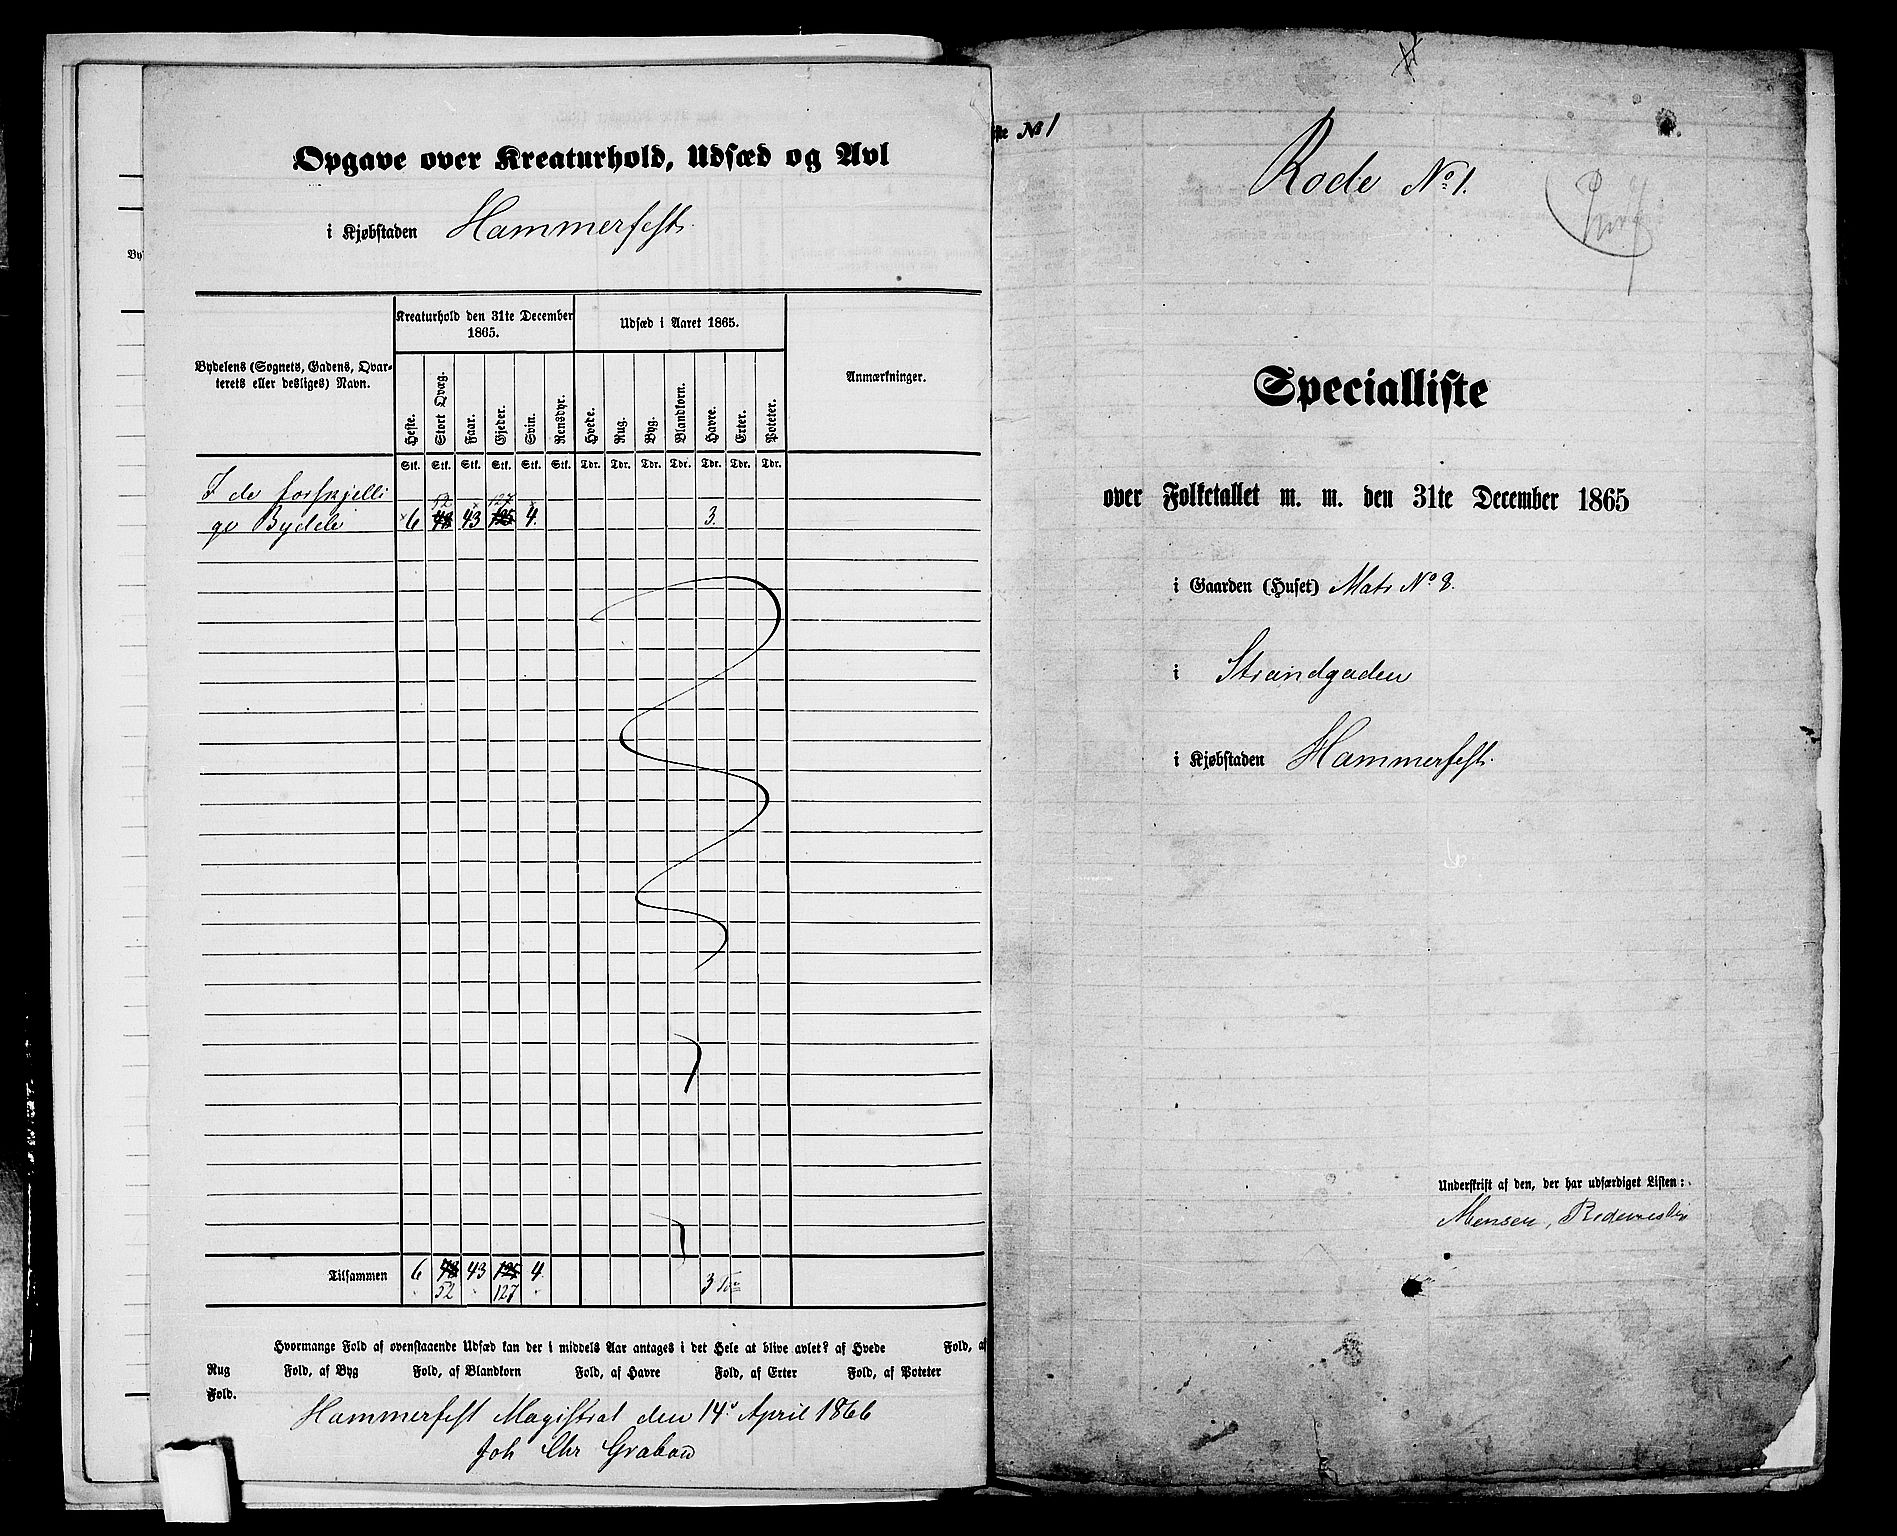 Opgave over Kreaturhold, Udsæd og Avl
i Kjøbstaden Hammerfest.
Bydelens (Sognets, Gadens, Qvar-
terets eller desliges) Navn.
Kreaturhold den 31te December
1865.
Udsæd i Aaret 1865.
Anmærkninger.
Heste. Stort Qvæg. Faar. Gjeder. Svin. Rensdyr. Hvede. Rug. Byg. Blandkorn. Havre. Erter. Poteter.
Stk. Stk. Stk. Stk. Stk. Stk. Tdr. Tdr. Tdr. Tdr. Tdr. Tdr. Tdr.
I de forskjelli
52 127
ge Bydele 6 48 43 125 4. 3.
Tilsammen 6 48 43 125 4.
52 127 3
Hvormange Fold af ovenstaaende Udsæd kan der i middels Aar antages i det Hele at blive avlet? af Hvede Fold, af
Rug Fold, af Byg Fold, af Blandkorn Fold, af Havre Fold, af Erter Fold, af Poteter
Fold.
Hammerfest Magistrat den 14de April 1866
Joh Chr Grabow
No 1
Rode No 1.
Specialliste
over Folketallet m. m. den 31te December 1865
i Gaarden (Huset) Matr No 8.
i Strandgaden
i Kjøbstaden Hammerfest.
Underskrift af den, der har udfærdiget Listen:
Mensen, Rodemester